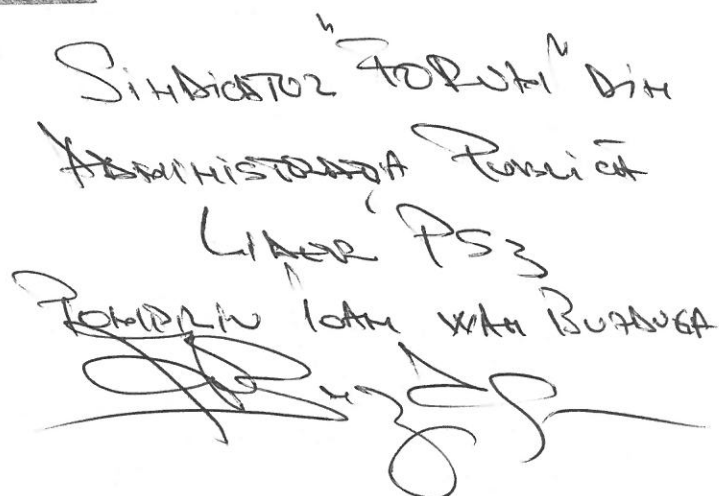 SINDICATUL "FORUM" DIN
ADMINISTRAȚIA PUBLICĂ
LIDER PS3
IOAN BUZDUGA